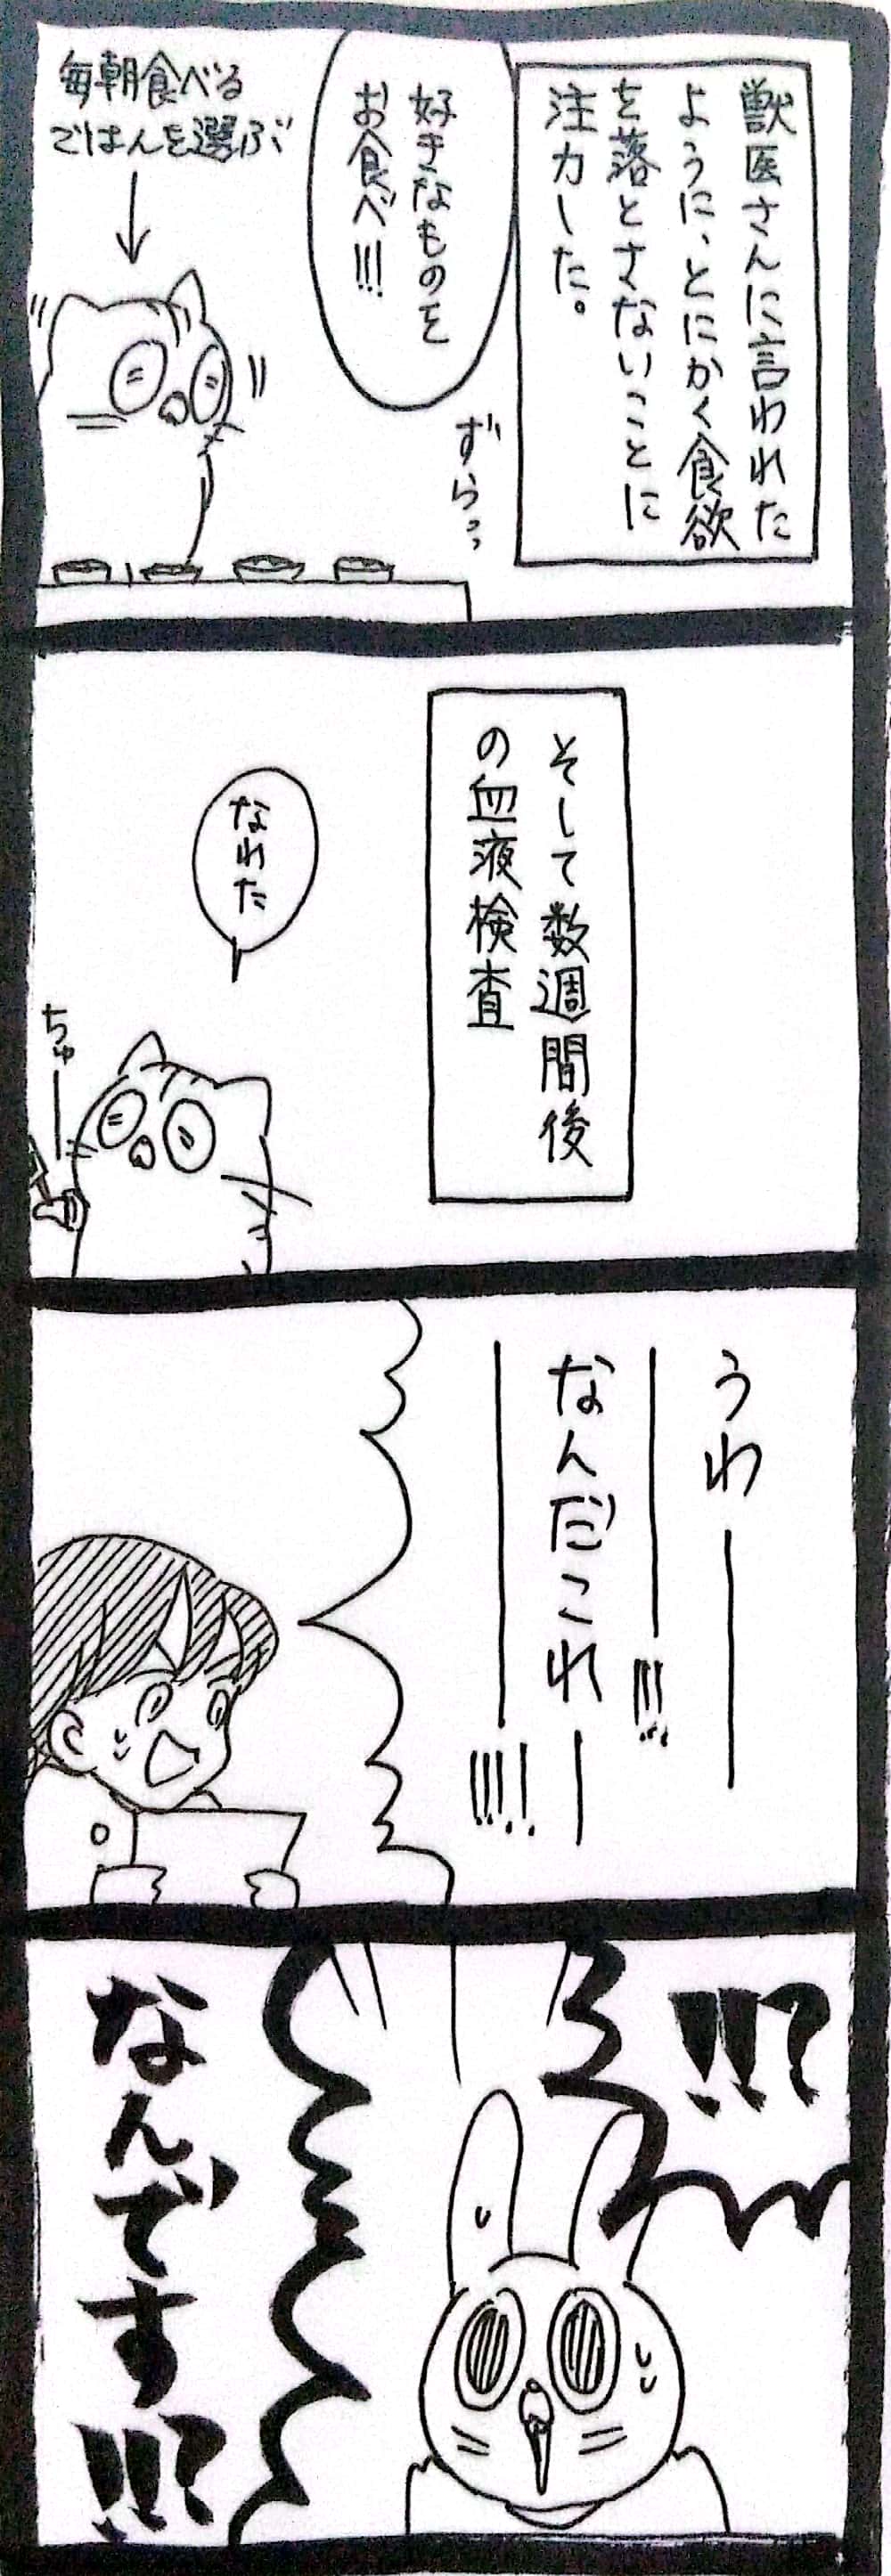 獣医さんに言われた
ように、とにかく食欲
を落とさないことに
注力した。
好きなものを
お食べ!!!
ずらっ
毎朝食べる
ごはんを選ぶ
そして数週間後
の血液検査
なれた
ちゅー
うわー
ー!!!
なんだこれー
ー!!!!
!!?
なんです
!!?